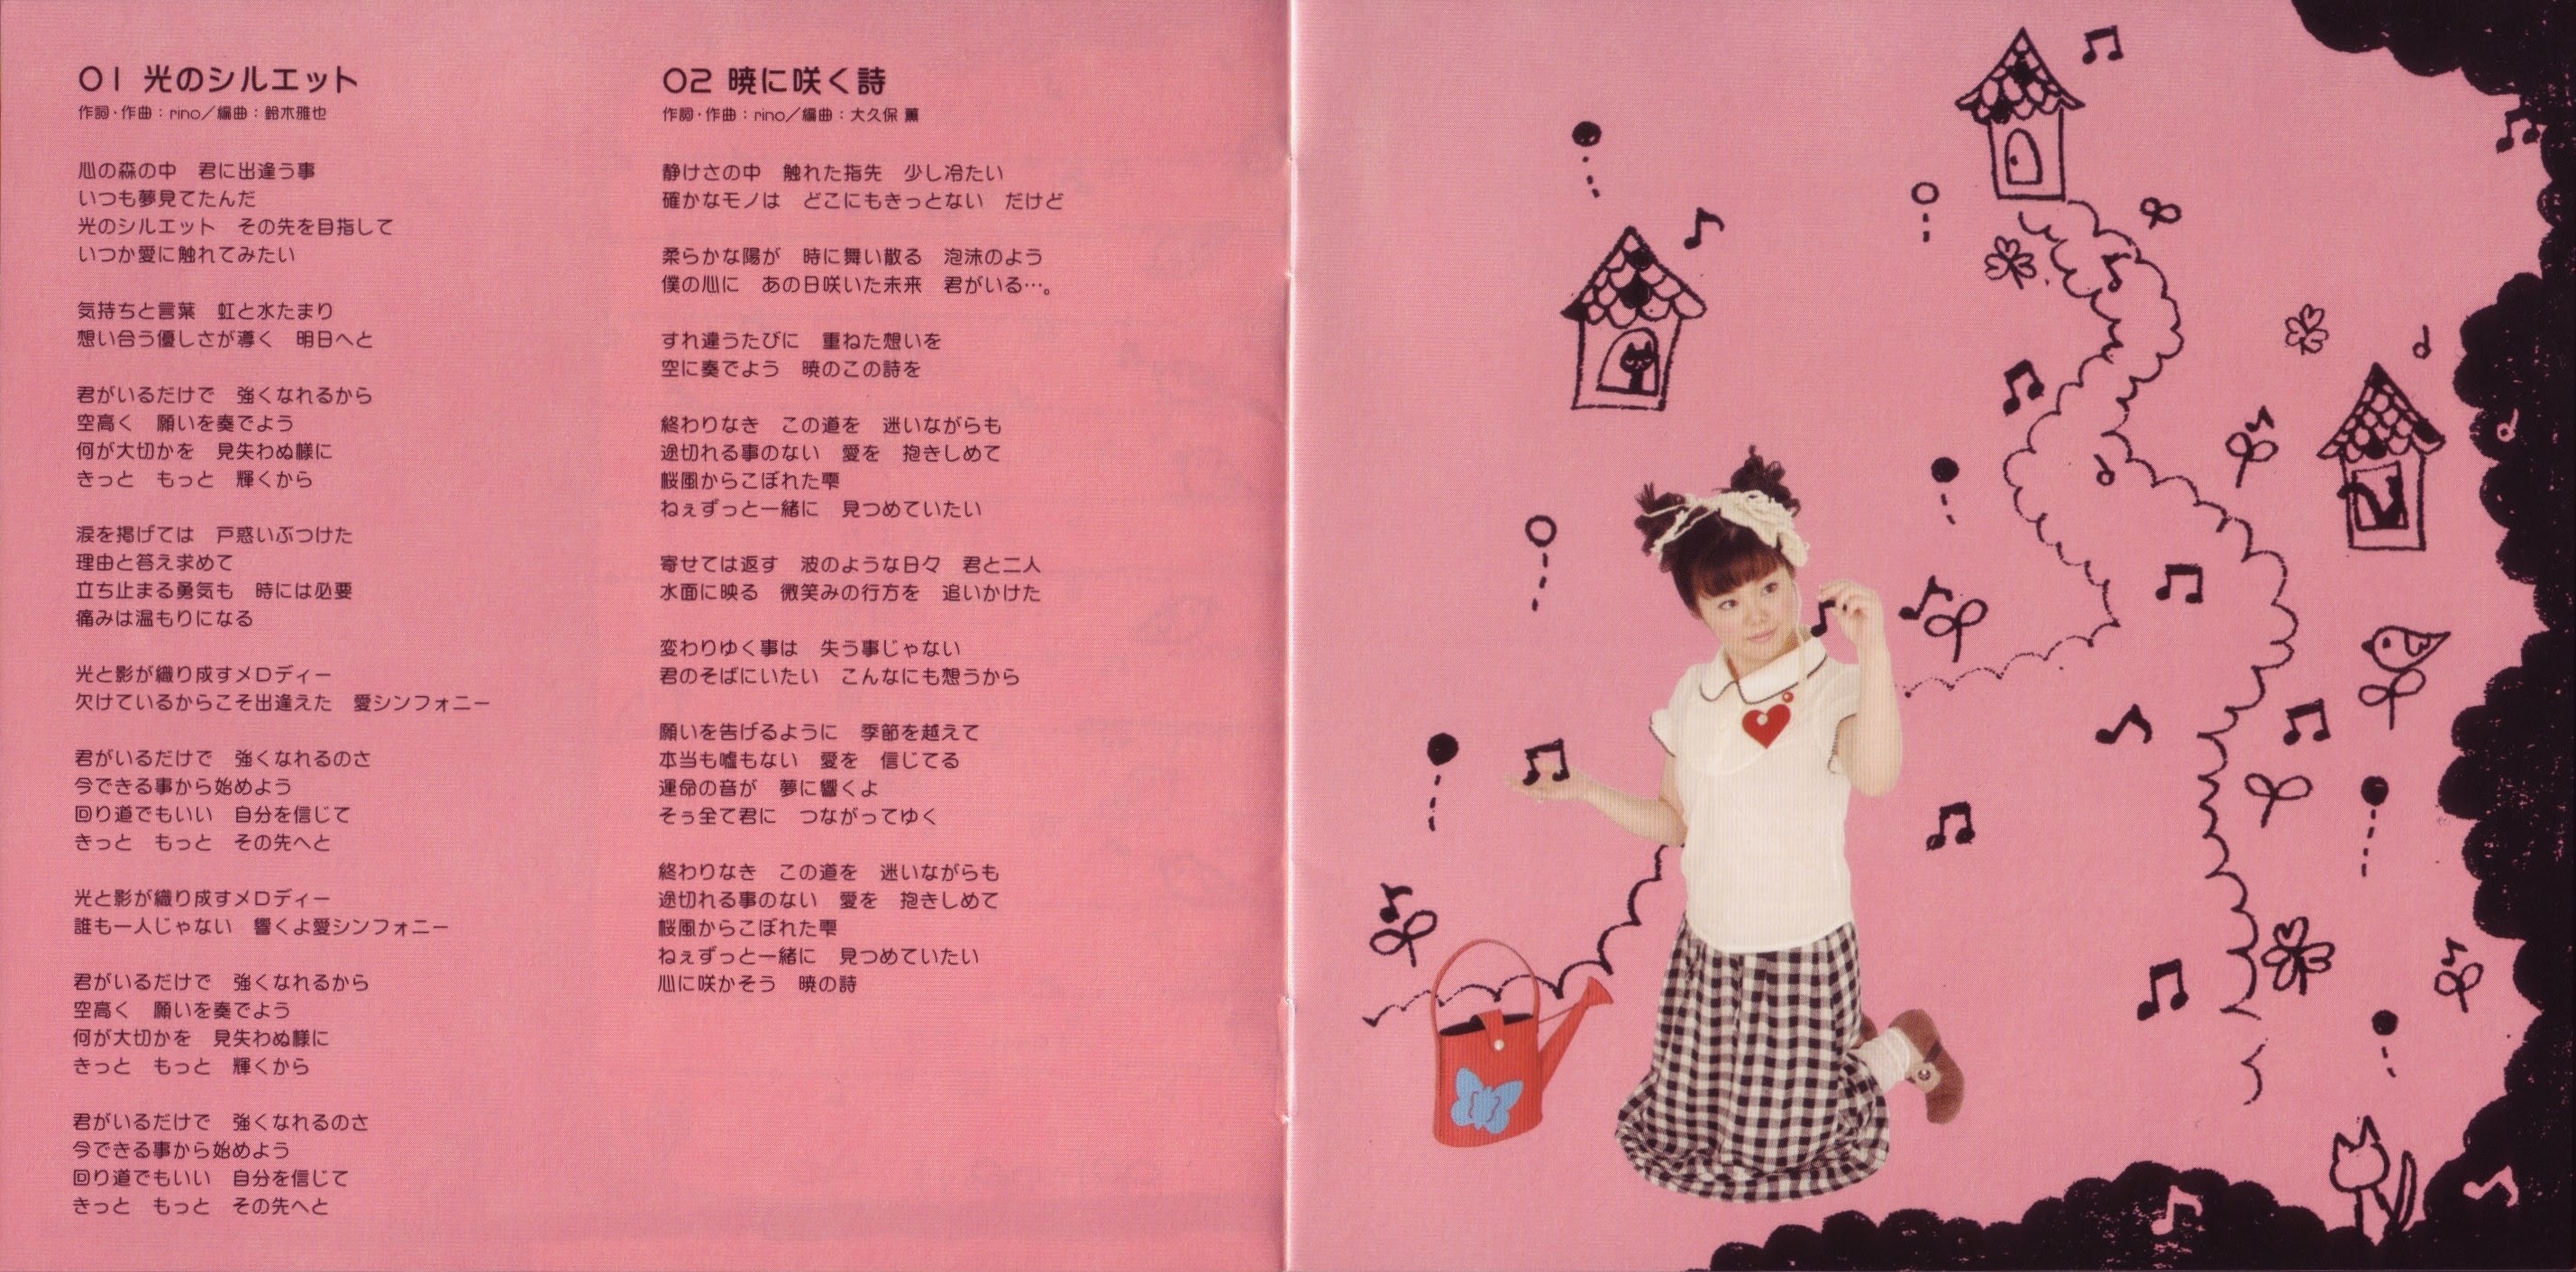 01 光のシルエット
作詞・作曲：rino／編曲：鈴木雅也
心の森の中　君に出逢う事
いつも夢見てたんだ
光のシルエット　その先を目指して
いつか愛に触れてみたい
気持ちと言葉　虹と水たまり
想い合う優しさが導く　明日へと
君がいるだけで　強くなれるから
空高く　願いを奏でよう
何が大切かを　見失わぬ様に
きっと　もっと　輝くから
涙を掲げては　戸惑いぶつけた
理由と答え求めて
立ち止まる勇気も　時には必要
痛みは温もりになる
光と影が織り成すメロディー
欠けているからこそ出逢えた　愛シンフォニー
君がいるだけで　強くなれるのさ
今できる事から始めよう
回り道でもいい　自分を信じて
きっと　もっと　その先へと
光と影が織り成すメロディー
誰も一人じゃない　響くよ愛シンフォニー
君がいるだけで　強くなれるから
空高く　願いを奏でよう
何が大切かを　見失わぬ様に
きっと　もっと　輝くから
君がいるだけで　強くなれるのさ
今できる事から始めよう
回り道でもいい　自分を信じて
きっと　もっと　その先へと
02 暁に咲く詩
作詞・作曲：rino／編曲：大久保 薫
静けさの中　触れた指先　少し冷たい
確かなモノは　どこにもきっとない　だけど
柔らかな陽が　時に舞い散る　泡沫のよう
僕の心に　あの日咲いた未来　君がいる…。
すれ違うたびに　重ねた想いを
空に奏でよう　暁のこの詩を
終わりなき　この道を　迷いながらも
途切れる事のない　愛を　抱きしめて
桜風からこぼれた雫
ねぇずっと一緒に　見つめていたい
寄せては返す　波のような日々　君と二人
水面に映る　微笑みの行方を　追いかけた
変わりゆく事は　失う事じゃない
君のそばにいたい　こんなにも想うから
願いを告げるように　季節を越えて
本当も嘘もない　愛を　信じてる
運命の音が　夢に響くよ
そぅ全て君に　つながってゆく
終わりなき　この道を　迷いながらも
途切れる事のない　愛を　抱きしめて
桜風からこぼれた雫
ねぇずっと一緒に　見つめていたい
心に咲かそう　暁の詩